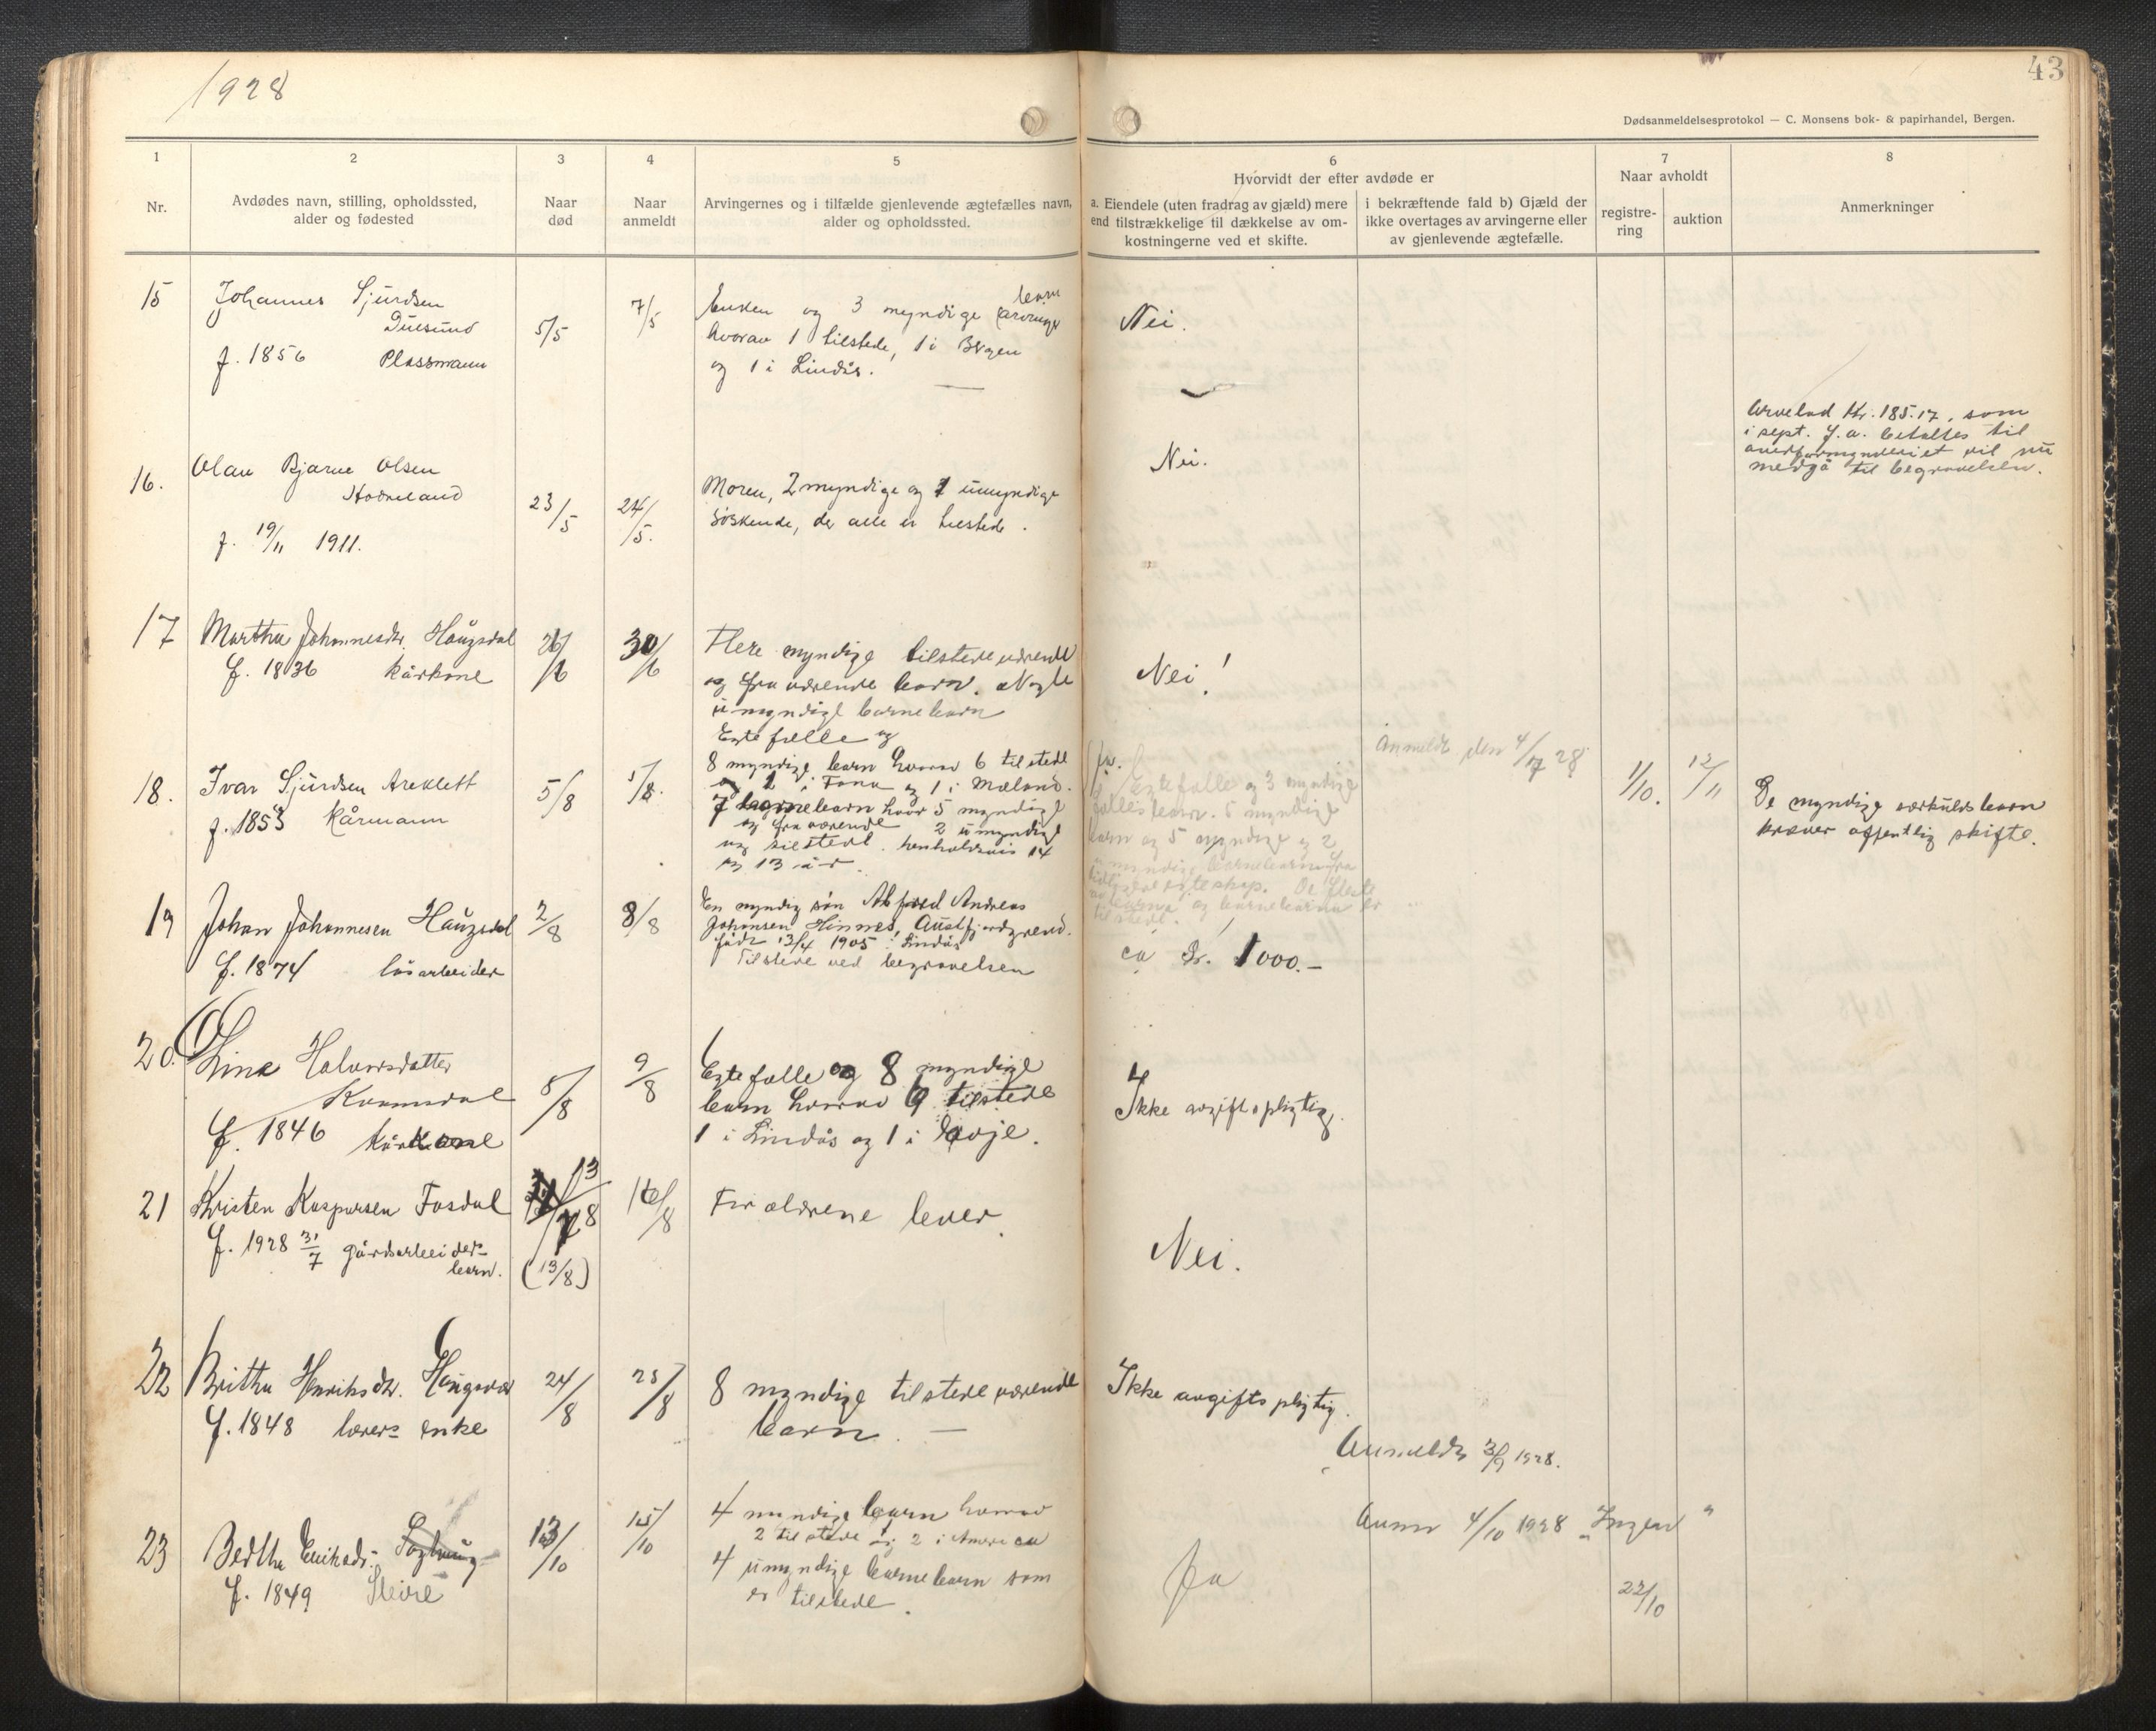 1928
43
Dødsanmeldelsesprotokol — C. Monsens bok- & papirhandel, Bergen.
1
2
3
4
5
6
7
8
Nr.
Avdødes navn, stilling, opholdssted,
alder og fødested
Naar
død
Naar
anmeldt
Arvingernes og i tilfælde gjenlevende ægtefælles navn,
alder og opholdssted.
Hvorvidt der efter avdøde er
a. Eiendele (uten fradrag av gjæld) mere
end tilstrækkelige til dækkelse av om-
kostningerne ved et skifte.
i bekræftende fald b) Gjæld der
ikke overtages av arvingerne eller
av gjenlevende ægtefælle.
Naar avholdt
registre-
ring
auktion
Anmerkninger
15
Johannes Sjursen
Duesund
f. 1856 Plassmann
5/5
7/5
Enken og 3 myndige barn
hvorav 1 tilstede, 1 i Bergen
og 1 i Lindås.
Nei.
16.
Olav Bjarne Olsen
f. 19/11 1911.
23/5
24/5.
Moren, 2 myndige og 1 umyndige
søskende, der alle er tilstede.
Nei.
Arvelod Kr. 185.17, som
i sept. f.a. betaltes til
overformynderiet vil nu
medgå til begravelsen.
17
Martha Johannesdtr. Haugsdal
f. 1836 kårkone
26/6
30/6
Flere myndige tilstedeværende
og fraværende barn. Nogle
umyndige barnebarn
Nei!
18.
Ivar Sjurdsen Areklett
f. 1853 Kårmann
5/8
5/8.
Egtefælle og
8 myndige barn hvorav 6 tilstede
og 1 i Fana og 1 i Mæland.
7 barnebarn hvor 5 myndige
og fraværende 2 umyndige
og tilstede. henholdsvis 14
og 13 år.
Ja.
Egtefælle og 3 myndige
fællesbarn. 5 myndige
barn og 5 myndige og 2
umyndige barnebarn fra
tidligere egteskap. De fleste
av barna og barnebarna er
tilstede.
Anmeldt den 4/7 28
1/10.
12/11
De myndige særkulds barn
krever offentlig skifte.
19
Johan Johannesen Haugsdal
f. 1874 løsarbeider
2/8
8/8
En myndig søn Alfred Andreas
Johansen Hinnes, Austfjordgrend.
født 13/4 1905 i Lindås
Tilstede ved begravelsen
ca Kr. 1000.—
20.
Lina Halvorsdatter
Kvamsdal
f. 1846 kårkone
8/8
9/8
Egtefælle og 8 myndige
barn hvorav 6 tilstede
1 i Lindås og 1 i Evje.
Ikke avgiftspligtig.
21
Kristen Kaspersen Fosdal
f. 1928 31/7 gårdsarbeider-
barn.
13/8
(13/8)
16/8
Forældrene lever.
Nei.
22
Britha Henriksdtr. Haugsvær
f. 1848 lærer enke
24/8
25/8
8 myndige tilstedeværende
barn. —
Ikke avgiftspligtig.
Anmeldt 3/9 1928.
23
Bertha
Sleire
f. 1849
13/10
15/10
4 myndige barn hvorav
2 tilstede og 2 i America
4 umyndige barnebarn som
er tilstede.
Ja
Anm 4/10 1928 "Ingen"
22/10